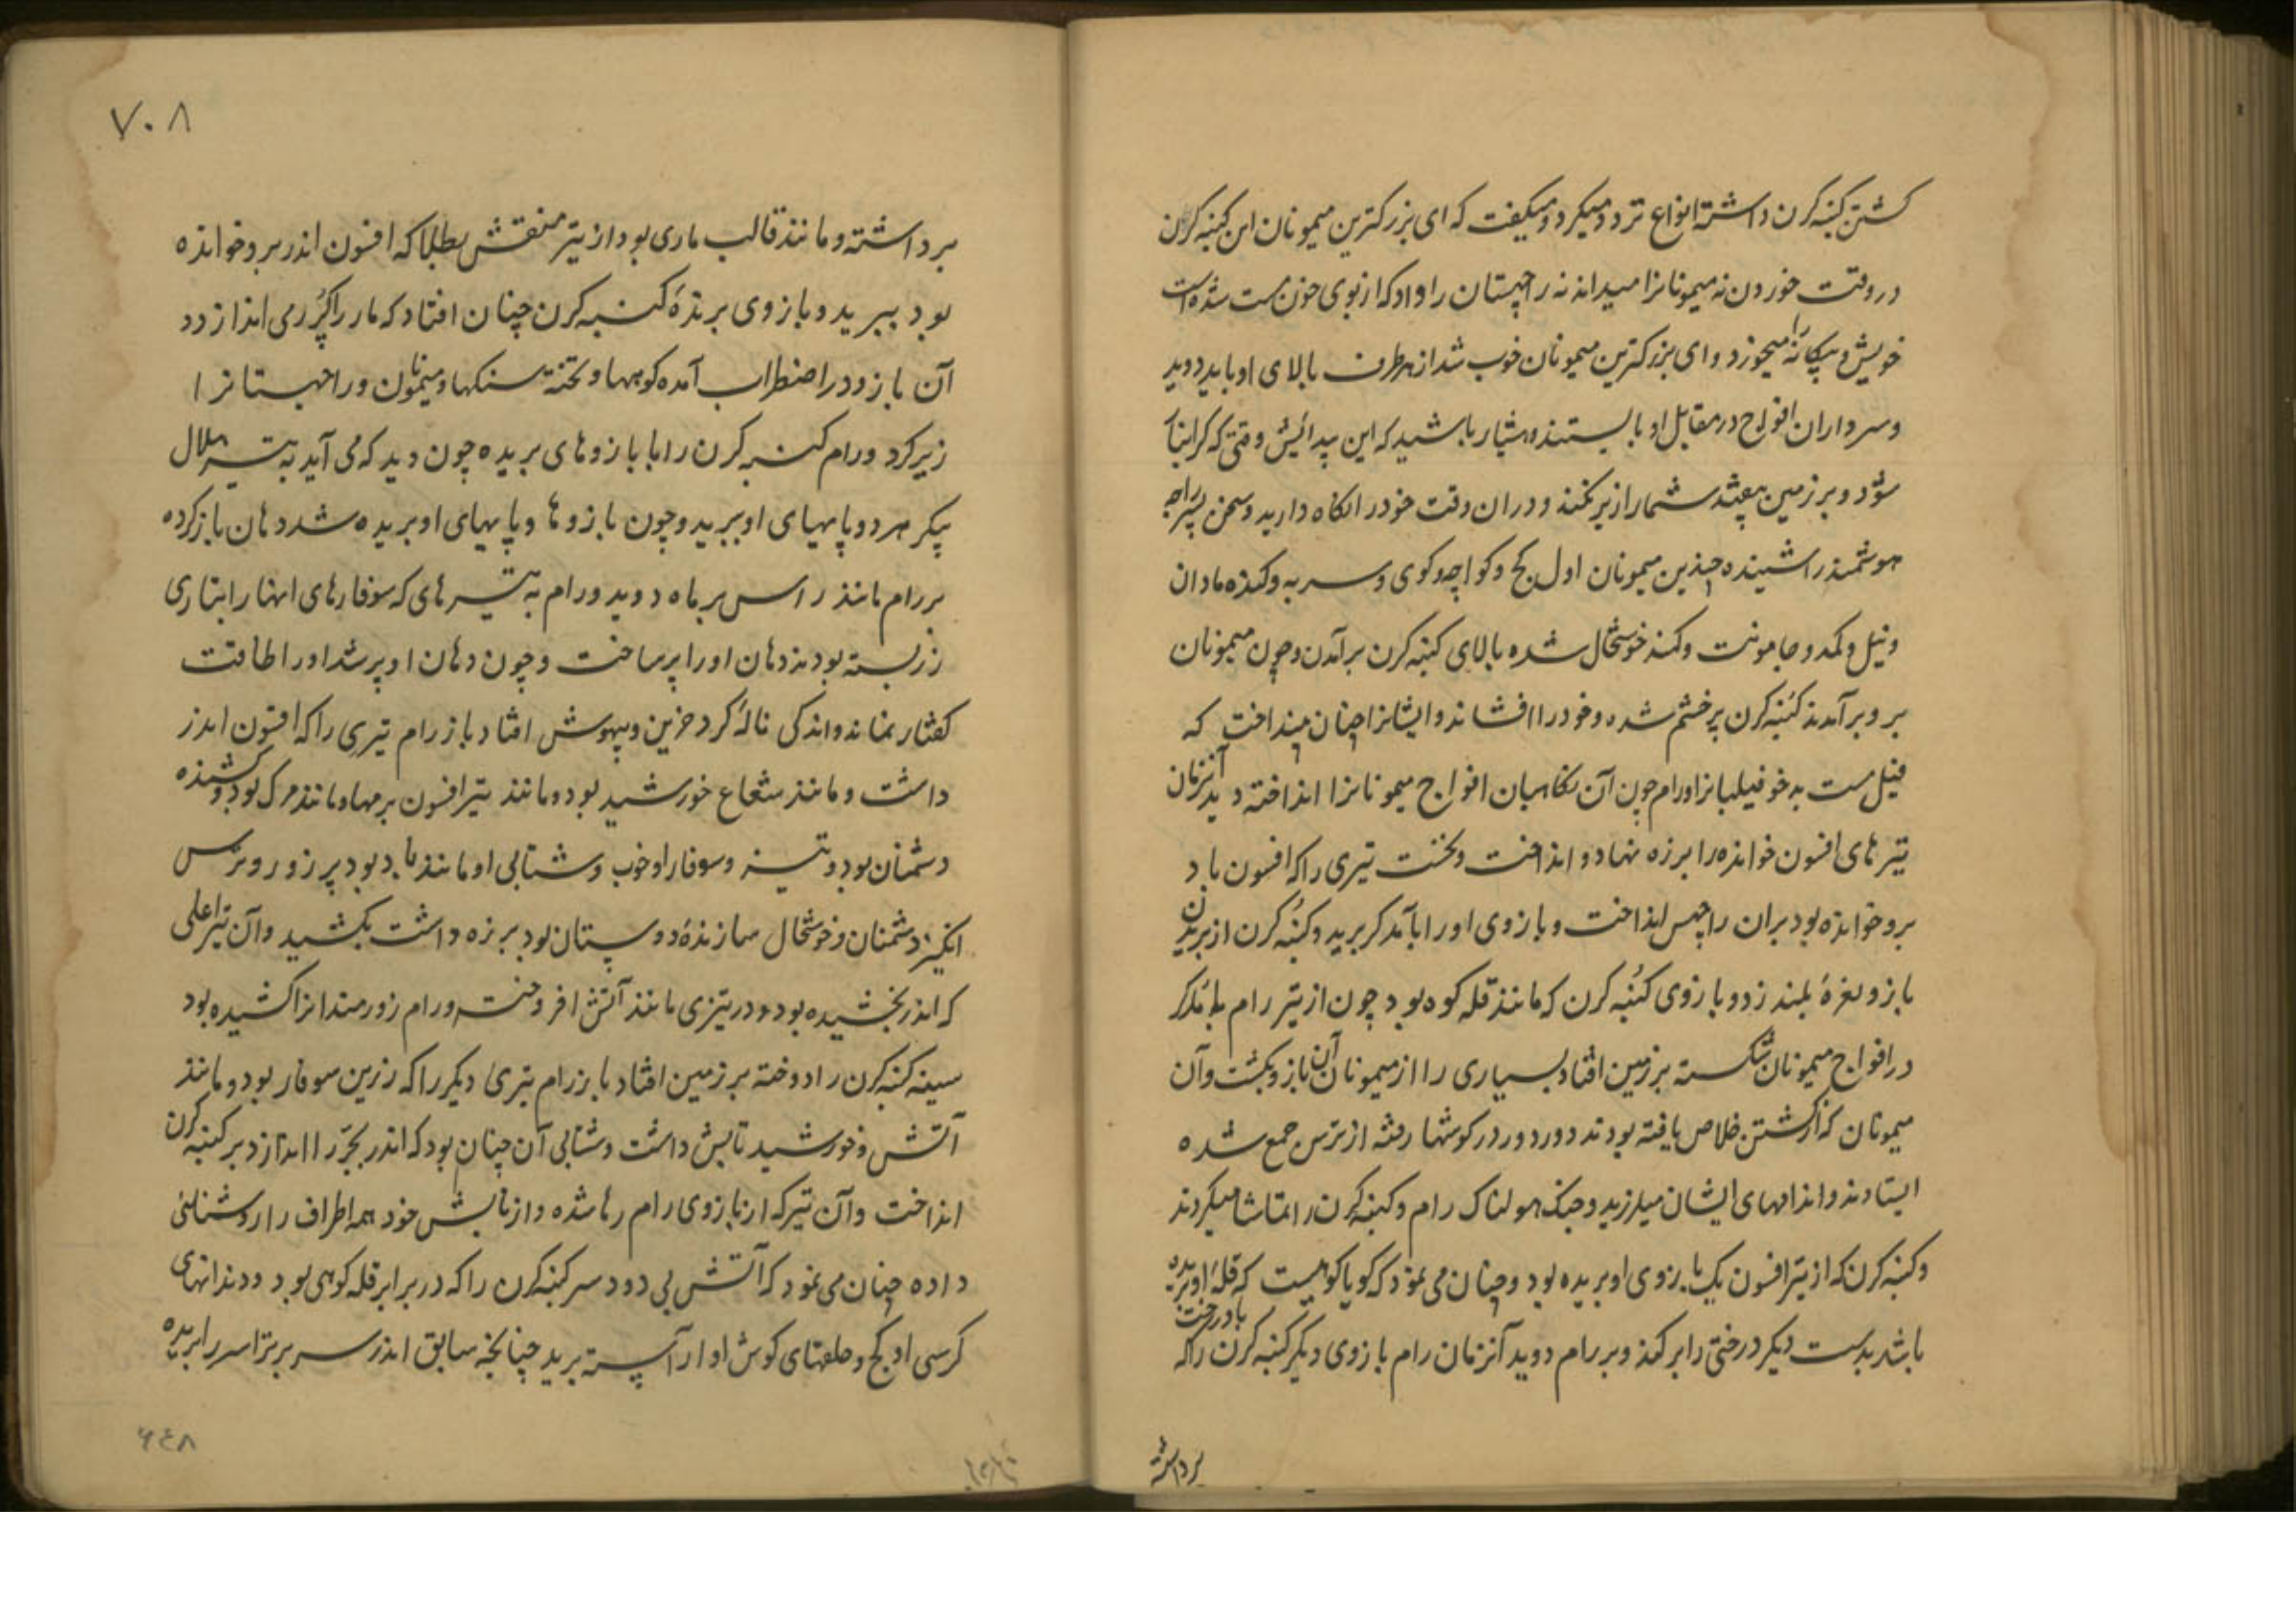 کشتن کنبه کرن داشته انواع تردد میکرد و میکفت که ای بزرکترین میمونان این کنبه کرن
در وقت خوردن نه میمونانرا میداند نه راچهستان را و او که از بوی خون مست شده است
خویش و بیکانه را میخورد و ای بزرکترین میمونان خوب شد از هر طرف بالای او باید دوید
و سرداران افواج در مقابل او بایستند و هشیار باشید که این وقتی که
شود و بر زمین بیفتد شما را زیر نکند و در آن وقت خود را نکاه دارید و سخن پسر راجه
هوشمند را شنیده چندین میمونان اول کج و کواچه و کوی و سربه و کنده مادان
و نیل و کمد و جامونت و کمند خوشحال شده بالای کنبه کرن برآمدن و چون میمونان
برو برآمدند کنبه کرن پرخشم شده و خود را افشاند و ایشانرا چنان مینداخت که
فیل مست بدخو فیلبانرا و رام چون آن نکاهبان افواج میمونانرا انداخته دید آنزمان
تیرهای افسون خوانده را بر زه نهاد و انداخت و نخست تیری را که افسون باد
برو خوانده بود بران راچهس انداخت و بازوی او را با مدکر برید و کنبه کرن از بریدن
بازو نعرهٔ بلند زد و بازوی کنبه کرن که مانند قله کوه بود چون از تیر رام با مدکر
در افواج میمونان شکسته بر زمین افتاد بسیاری را از میمونان آن بازو بکشت و آن
میمونان که از کشتن خلاص یافته بودند دور دور در کوشها رفته از ترس جمع شده
ایستادند و اندامهای ایشان میلرزید و جنک هولناک رام و کنبه کرن را تماشا میکردند
و کنبه کرن که از تیر افسون یک بازوی او بریده بود و چنان می نمود که کویا کوهیست که قلهٔ او بریده
باشد بدست دیکر درختی را برکند و بر رام دوید آنزمان رام بازوی دیکر کنبه کرن را که با درخت
برداشته
۷۰۸
برداشته و مانند قالب ماری بود از تیر منقش بطلا که افسون اندر برو خوانده
بود ببرید و بازوی برندهٔ کنبه کرن چنان افتاد که مار را کرر می اندازد و
آن بازو در اضطراب آمده کوهها و تخته سنکها و میمونان و راچهستانرا
زیر کرد و رام کنبه کرن را با بازوهای بریده چون دید که می آید به تیر هلال
پیکر هر دو پایهای او ببرید و چون بازوها و پایهای او بریده شد دهان باز کرده
بر رام مانند راس بر ماه دوید و رام به تیرهای که سوفارهای انها را بتاری
زر بسته بودند دهان او را پر ساخت و چون دهان او پر شد او را طاقت
کفتار نماند و اندکی نالهٔ کرد حزین و بیهوش افتاد باز رام تیری را که افسون اندر
داشت و مانند شعاع خورشید بود و مانند تیر افسون برمها و مانند مرک بود و کشنده
دشمنان بود و تیز و سوفار او خوب و شتابی او مانند باد بود پر زور و ترس
انکیز دشمنان و خوشحال سازندهٔ دوستان بود بر زه داشت بکشید و آن تیر اعلی
که اندر بخشیده بود و در تیزی مانند آتش افروخت و رام زورمند انرا کشیده بود
سینه کنبه کرن را دوخته بر زمین افتاد باز رام تیری دیکر را که زرین سوفار بود و مانند
آتش و خورشید تابش داشت و شتابی آن چنان بود که اندر بجر را اندازد بر کنبه کرن
انداخت و آن تیر که از بازوی رام رها شده و از تابش خود همه اطراف را روشنائی
داده چنان می نمود که آتش بی دود سر کنبه کرن را که در برابر قله کوهی بود و دندانهای
کرسی او کج و حلقهای کوش او آراسته برید چنانچه سابق اندر سر برتراسر را بریده
۶۴۸